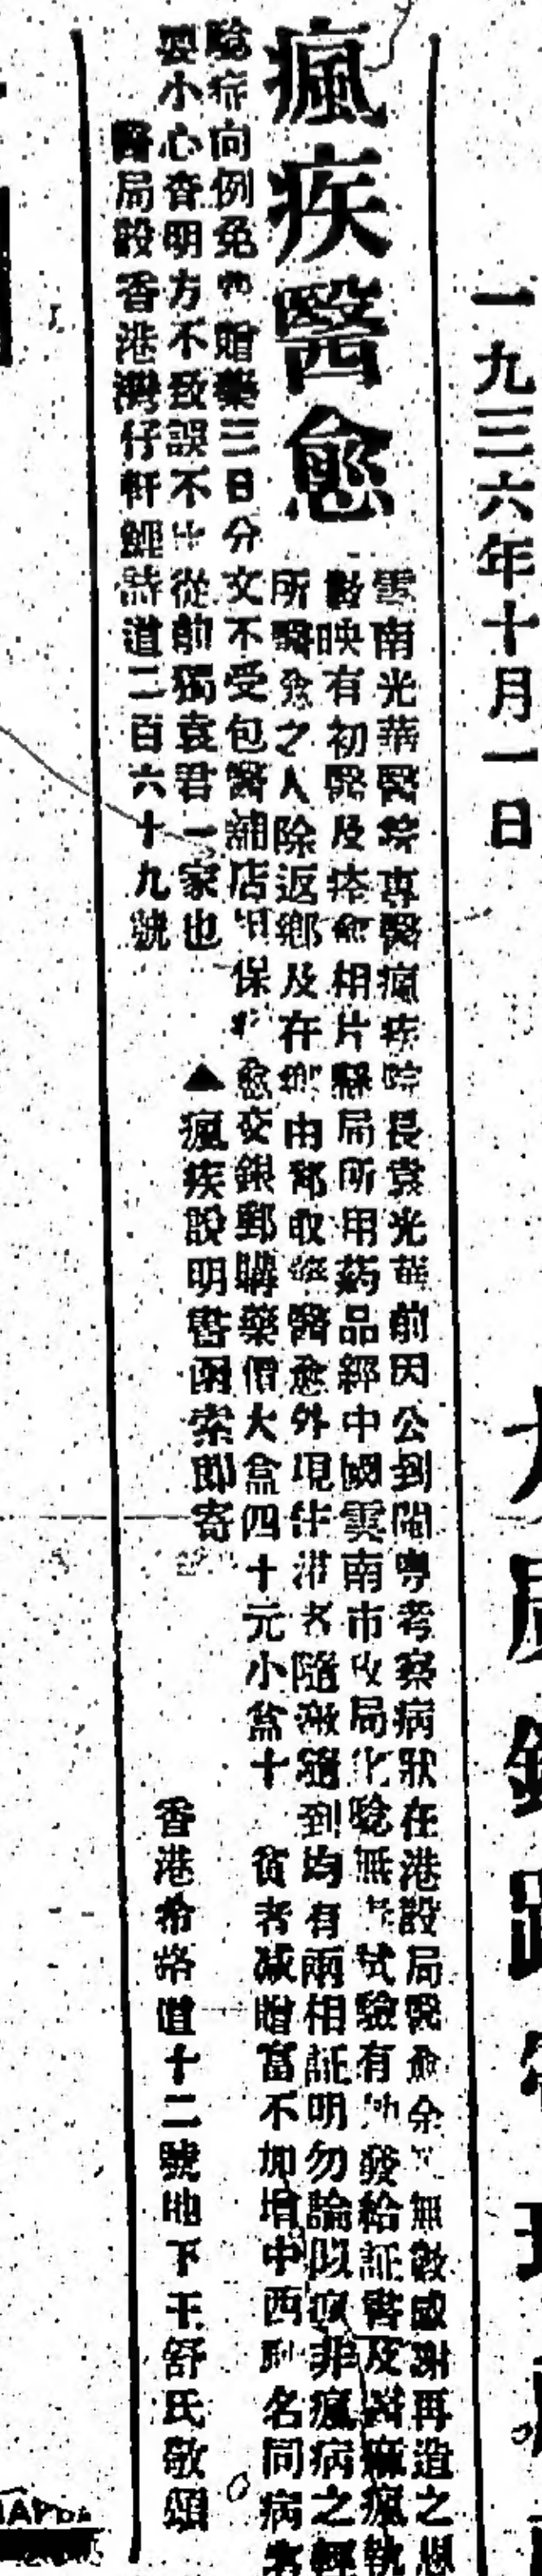 一九三六年十月一日
瘋疾醫愈
雲南光華醫院專醫瘋疾院長袁光華前因公到閩粤考察病狀在港設局醫愈余 無數感謝再造之恩
映有初醫及痊愈相片醫局所用葯品經中國雲南市 局化騐無 試驗有 發給証書及 麻瘋執
所醫愈之人除返鄉及在鄉由郵取 醫愈外現 港者隨 隨到均有兩相証明勿論似瘋非瘋病之輕
騐症向例免 贈藥三日分文不受包醫舖店 保 愈交銀郵購藥價大盒四十元小盒十 貧者減贈富不加增中西 名同病者
要小心查明方不致誤不 從前獨袁君一家也 ▲瘋疾說明書函索即寄
醫局設香港灣仔軒鯉詩道二百六十九號 香港希路道十二號地下王舒氏敬頌